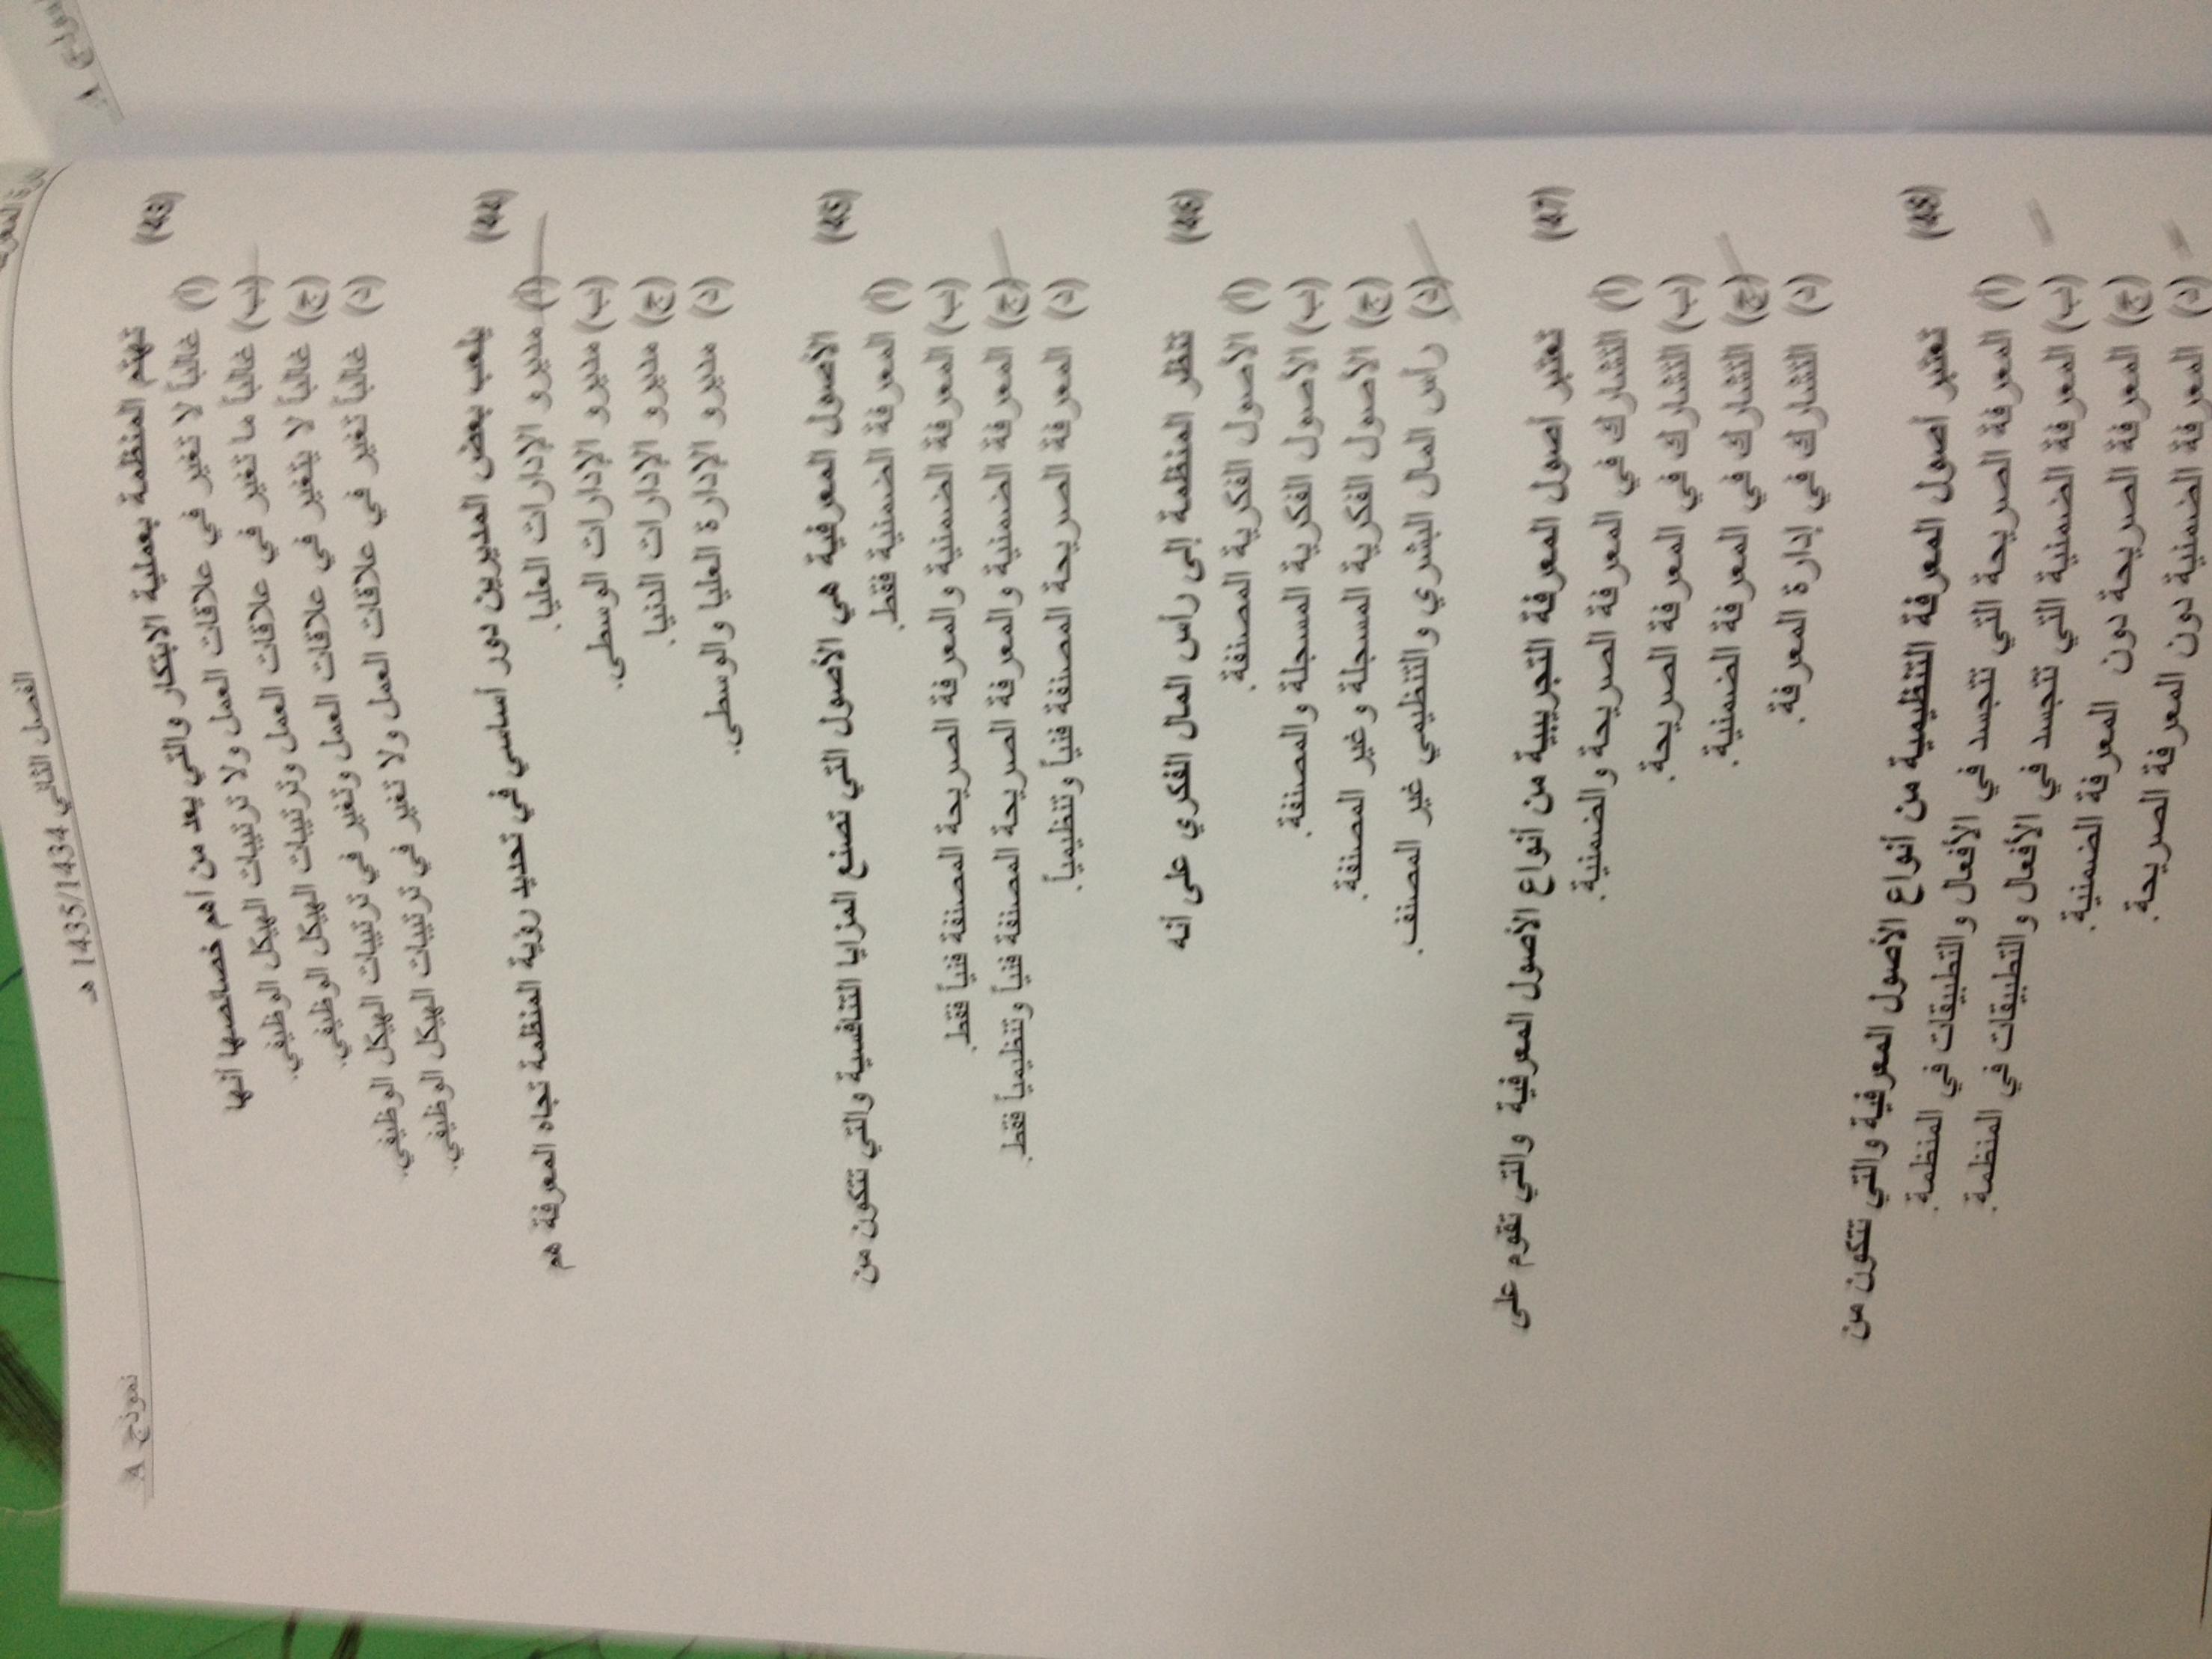 الفصل الثاني 1434/1435 هـ
نموذج A
(43) تهتم المنظمة بعملية الابتكار والتي يعد من أهم خصائصها أنها
(أ) غالباً لا تغير في علاقات العمل ولا ترتيبات الهيكل الوظيفي.
(ب) غالباً ما تغير في علاقات العمل وترتيبات الهيكل الوظيفي.
(ج) غالباً لا يتغير في علاقات العمل وتغير في ترتيبات الهيكل الوظيفي.
(د) غالباً تغير في علاقات العمل ولا تغير في ترتيبات الهيكل الوظيفي.
(44) يلعب بعض المديرين دور أساسي في تحديد رؤية المنظمة تجاه المعرفة هم
(أ) مديرو الإدارات العليا.
(ب) مديرو الإدارات الوسطى.
(ج) مديرو الإدارات الدنيا.
(د) مديرو الإدارة العليا والوسطى.
(45) الأصول المعرفية هي الأصول التي تصنع المزايا التنافسية والتي تتكون من
(أ) المعرفة الضمنية فقط.
(ب) المعرفة الضمنية والمعرفة الصريحة المصنفة فنياً فقط.
(ج) المعرفة الضمنية والمعرفة الصريحة المصنفة فنياً وتنظيمياً فقط.
(د) المعرفة الصريحة المصنفة فنياً وتنظيمياً.
(46) تنظر المنظمة إلى رأس المال الفكري على أنه
(أ) الأصول الفكرية المصنفة.
(ب) الأصول الفكرية المسجلة والمصنفة.
(ج) الأصول الفكرية المسجلة وغير المصنفة.
(د) رأس المال البشري والتنظيمي غير المصنف.
(47) تعتبر أصول المعرفة التجريبية من أنواع الأصول المعرفية والتي تقوم على
(أ) التشارك في المعرفة الصريحة والضمنية.
(ب) التشارك في المعرفة الصريحة.
(ج) التشارك في المعرفة الضمنية.
(د) التشارك في إدارة المعرفة.
(48) تعتبر أصول المعرفة التنظيمية من أنواع الأصول المعرفية والتي تتكون من
(أ) المعرفة الصريحة التي تتجسد في الأفعال والتطبيقات في المنظمة.
(ب) المعرفة الضمنية التي تتجسد في الأفعال والتطبيقات في المنظمة.
(ج) المعرفة الصريحة دون المعرفة الضمنية.
(د) المعرفة الضمنية دون المعرفة الصريحة.